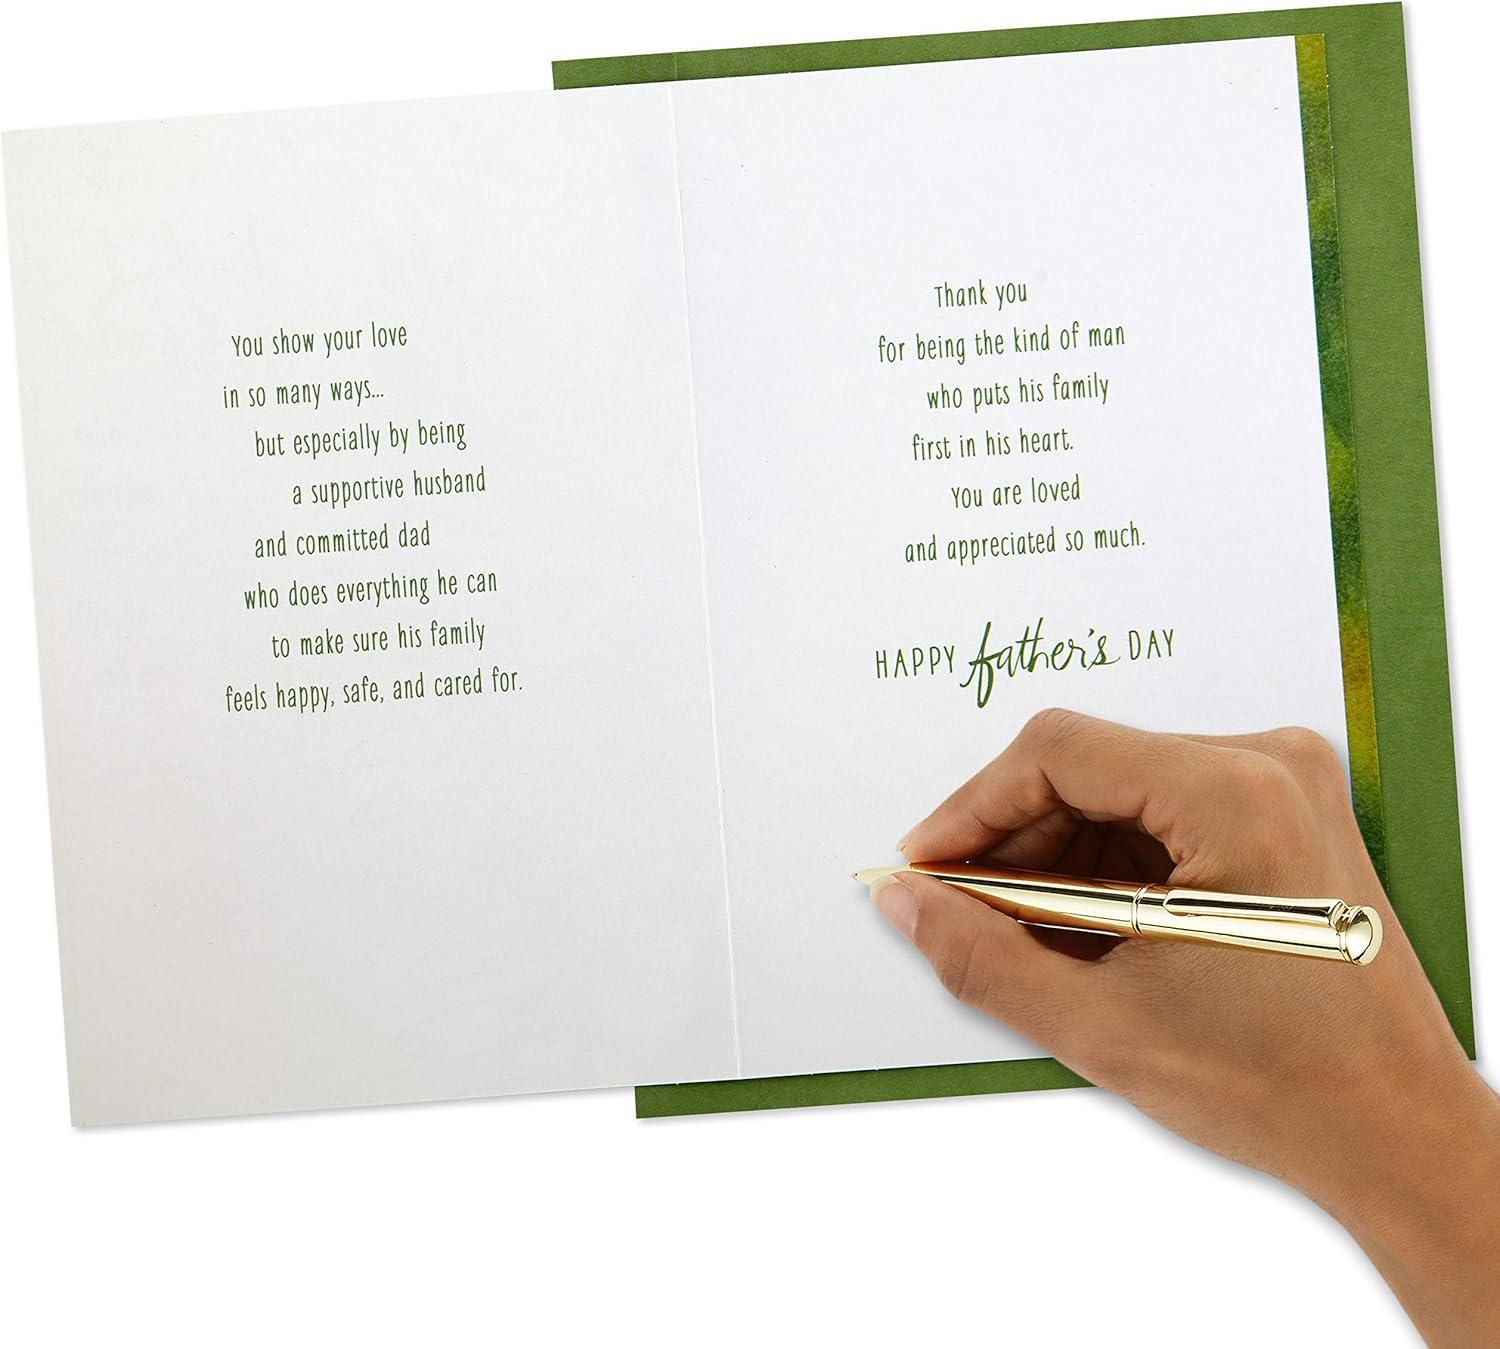 You show your love
in so many ways...
but especially by being
a supportive husband
and committed dad
who does everything he can
to make sure his family
feels happy, safe, and cared for.
Thank you
for being the kind of man
who puts his family
first in his heart.
You are loved
and appreciated so much.
HAPPY father's DAY